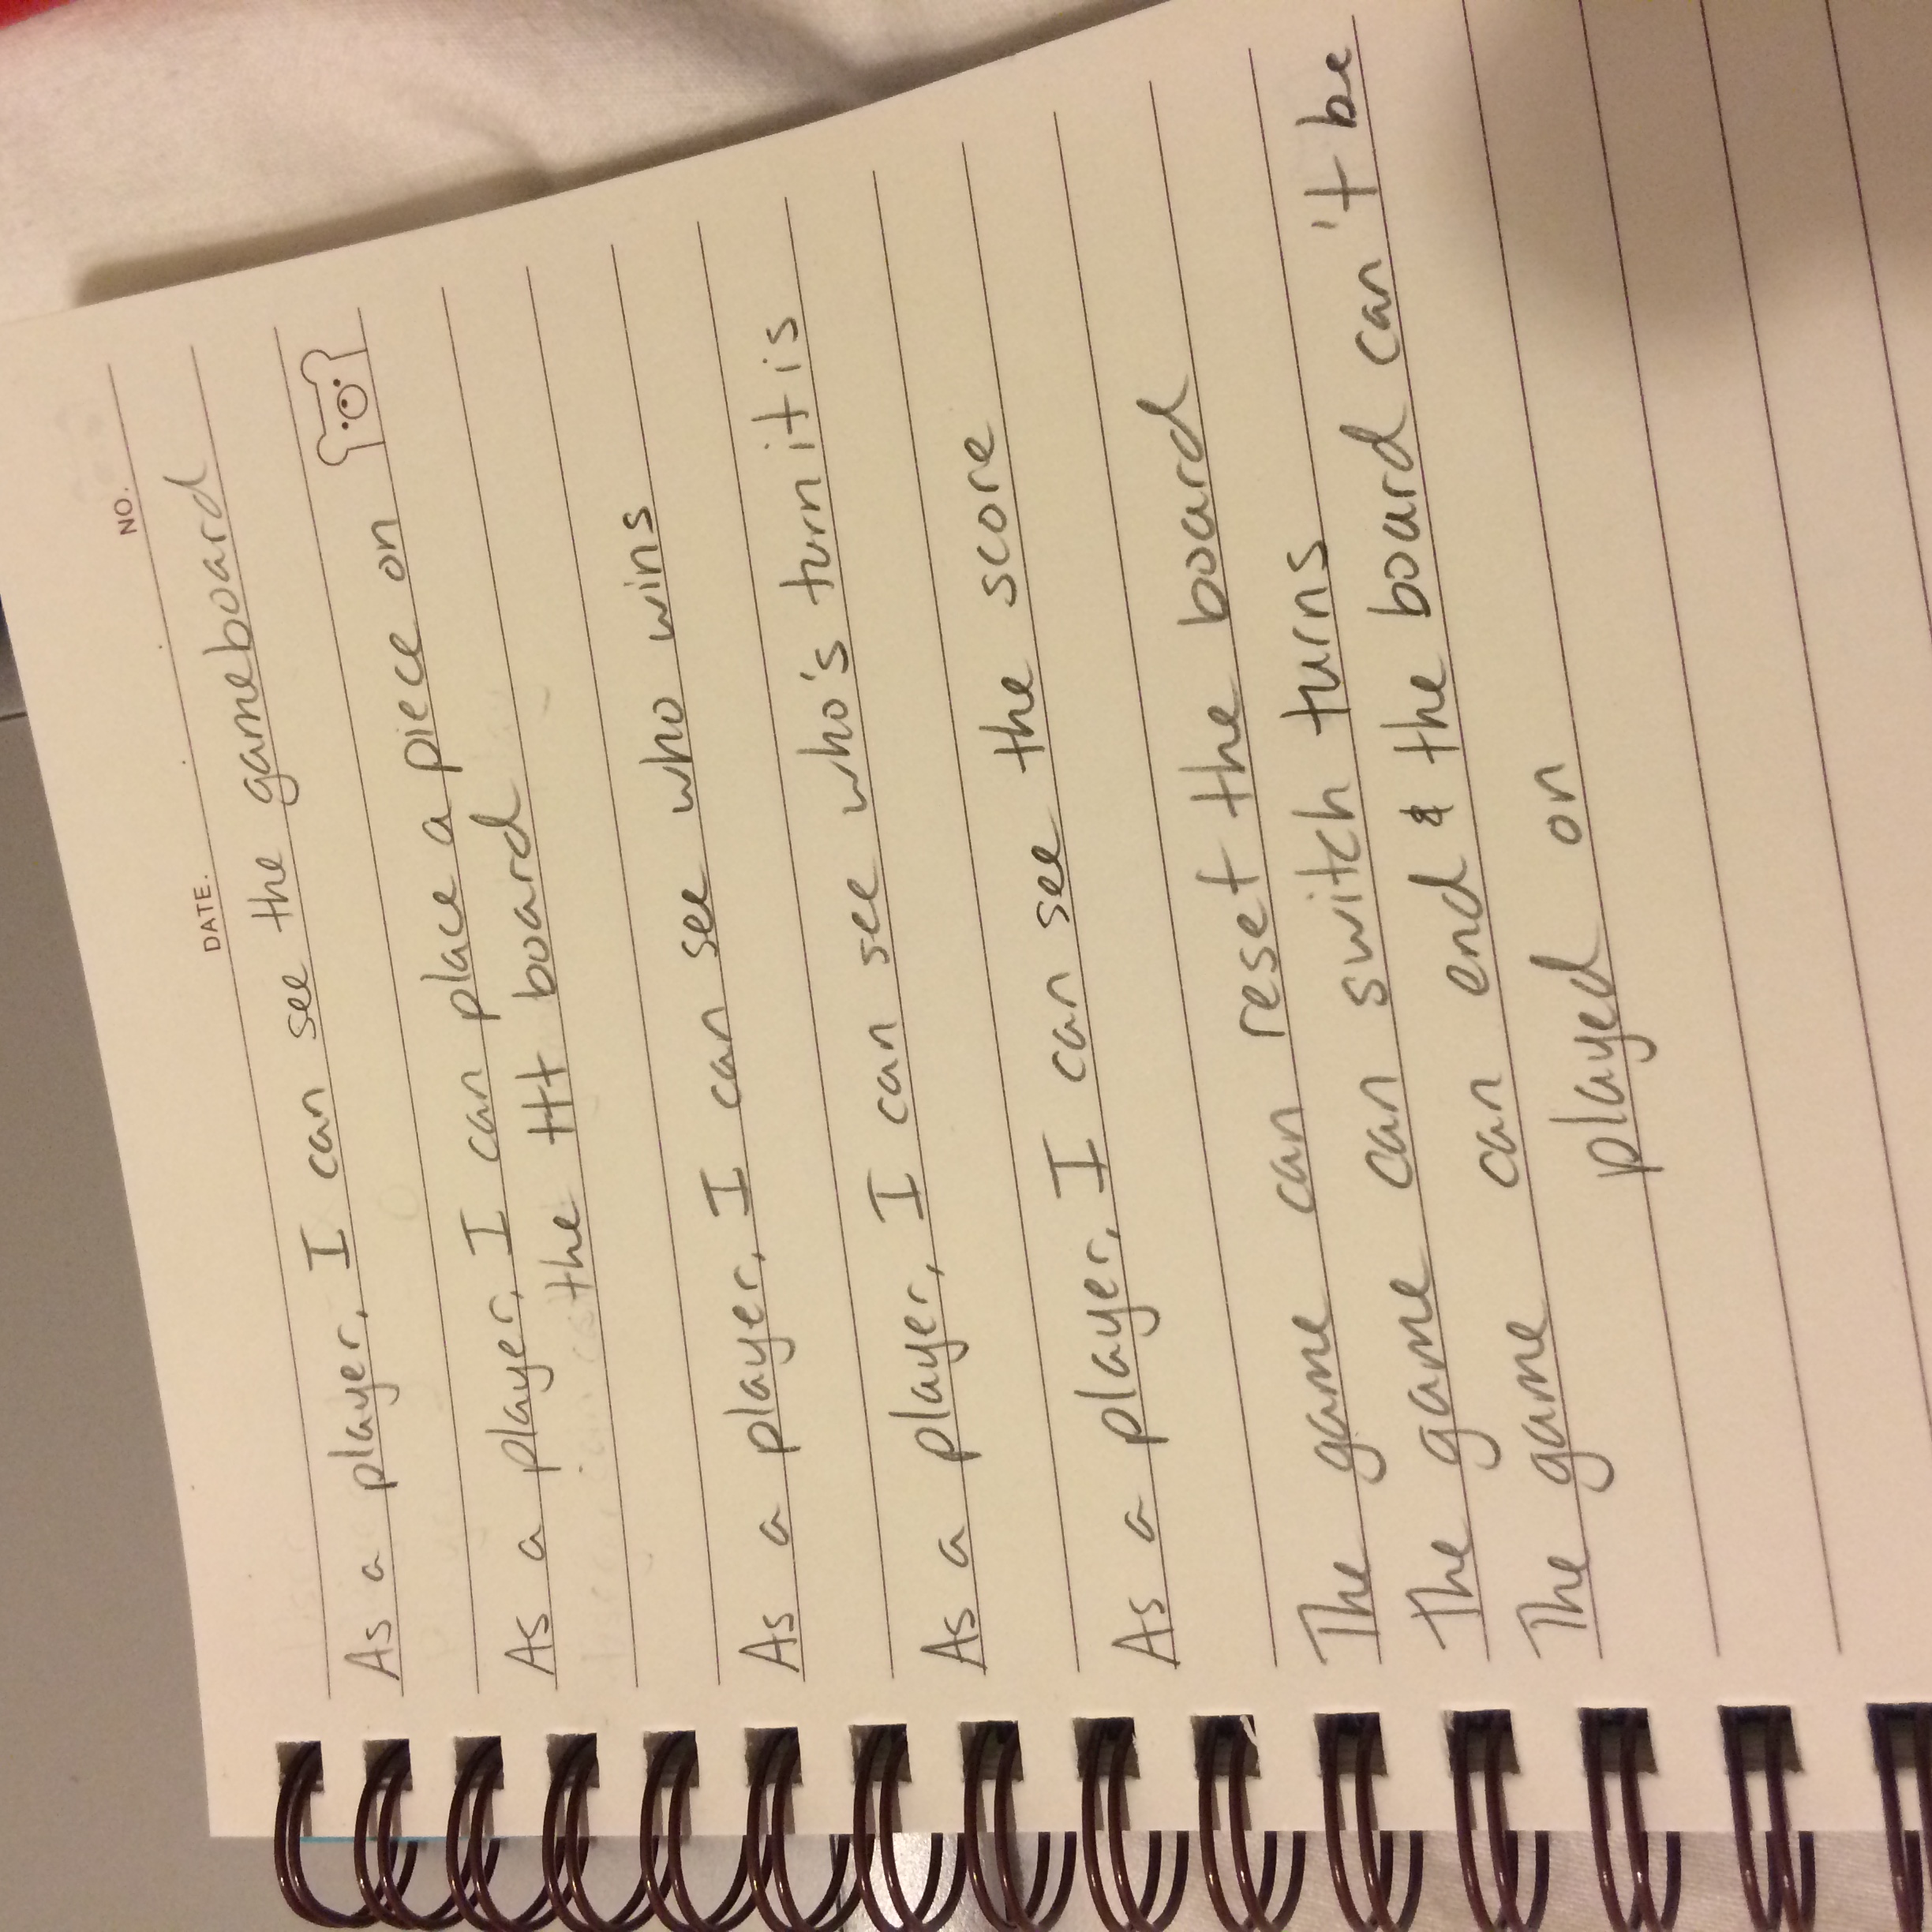 NO.
DATE.
As a player, I can see the gameboard
As a player, I can place a piece on
the ttt board
As a player, I can see who wins
As a player, I can see who's turn it is
As a player, I can see the score
The game can reset the board
The game can switch turns
The game can end & the board can't be
played on